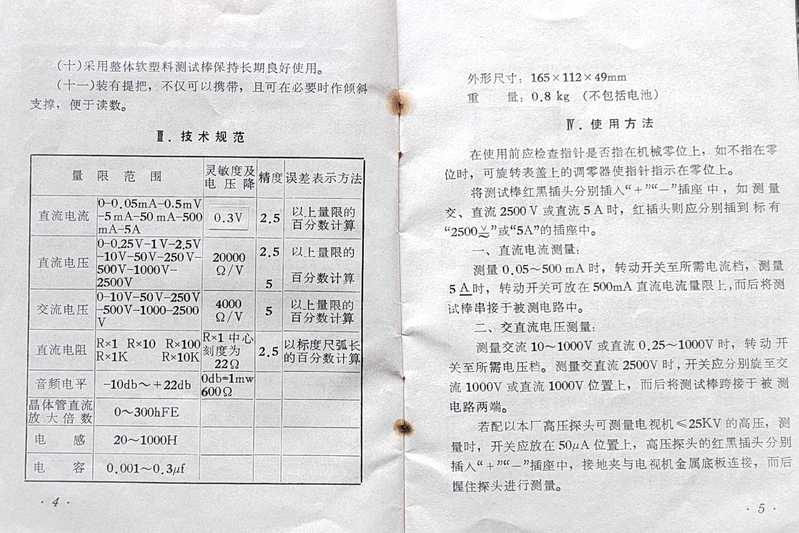 (十)采用整体软塑料测试棒保持长期良好使用。
(十一)装有提把，不仅可以携带，且可在必要时作倾斜
支撑，便于读数。
Ⅲ．技术规范
量限范围 灵敏度及电压降 精度 误差表示方法
直流电流 0-0.05mA-0.5mV 0.3V 2.5 以上量限的百分数计算
-5mA-50mA-500
mA-5A
直流电压 0-0.25V-1V-2.5V 20000Ω/V 2.5 以上量限的
-10V-50V-250V-
500V-1000V- 5 百分数计算
2500V
交流电压 0-10V-50V-250V 4000Ω/V 5 以上量限的百分数计算
-500V-1000-2500
V
直流电阻 R×1 R×10 R×100 R×1中心刻度为22Ω 2.5 以标度尺弧长的百分数计算
R×1K R×10K
音频电平 -10db～+22db 0db=1mw 600Ω
晶体管直流放大倍数 0～300hFE
电感 20～1000H
电容 0.001～0.3μf
· 4 ·
外形尺寸：165×112×49mm
重量：0.8kg (不包括电池)
Ⅳ．使用方法
在使用前应检查指针是否指在机械零位上，如不指在零
位时，可旋转表盖上的调零器使指针指示在零位上。
将测试棒红黑插头分别插入“+”“-”插座中，如测量
交、直流2500V或直流5A时，红插头则应分别插到标有
“2500V̰”或“5A”的插座中。
一、直流电流测量：
测量0.05～500mA时，转动开关至所需电流档，测量
5A时，转动开关可放在500mA直流电流量限上，而后将测
试棒串接于被测电路中。
二、交直流电压测量：
测量交流10～1000V或直流0.25～1000V时，转动开
关至所需电压档。测量交直流2500V时，开关应分别旋至交
流1000V或直流1000V位置上，而后将测试棒跨接于被测
电路两端。
若配以本厂高压探头可测量电视机≤25KV的高压，测
量时，开关应放在50μA位置上，高压探头的红黑插头分别
插入“+”“-”插座中，接地夹与电视机金属底板连接，而后
握住探头进行测量。
· 5 ·